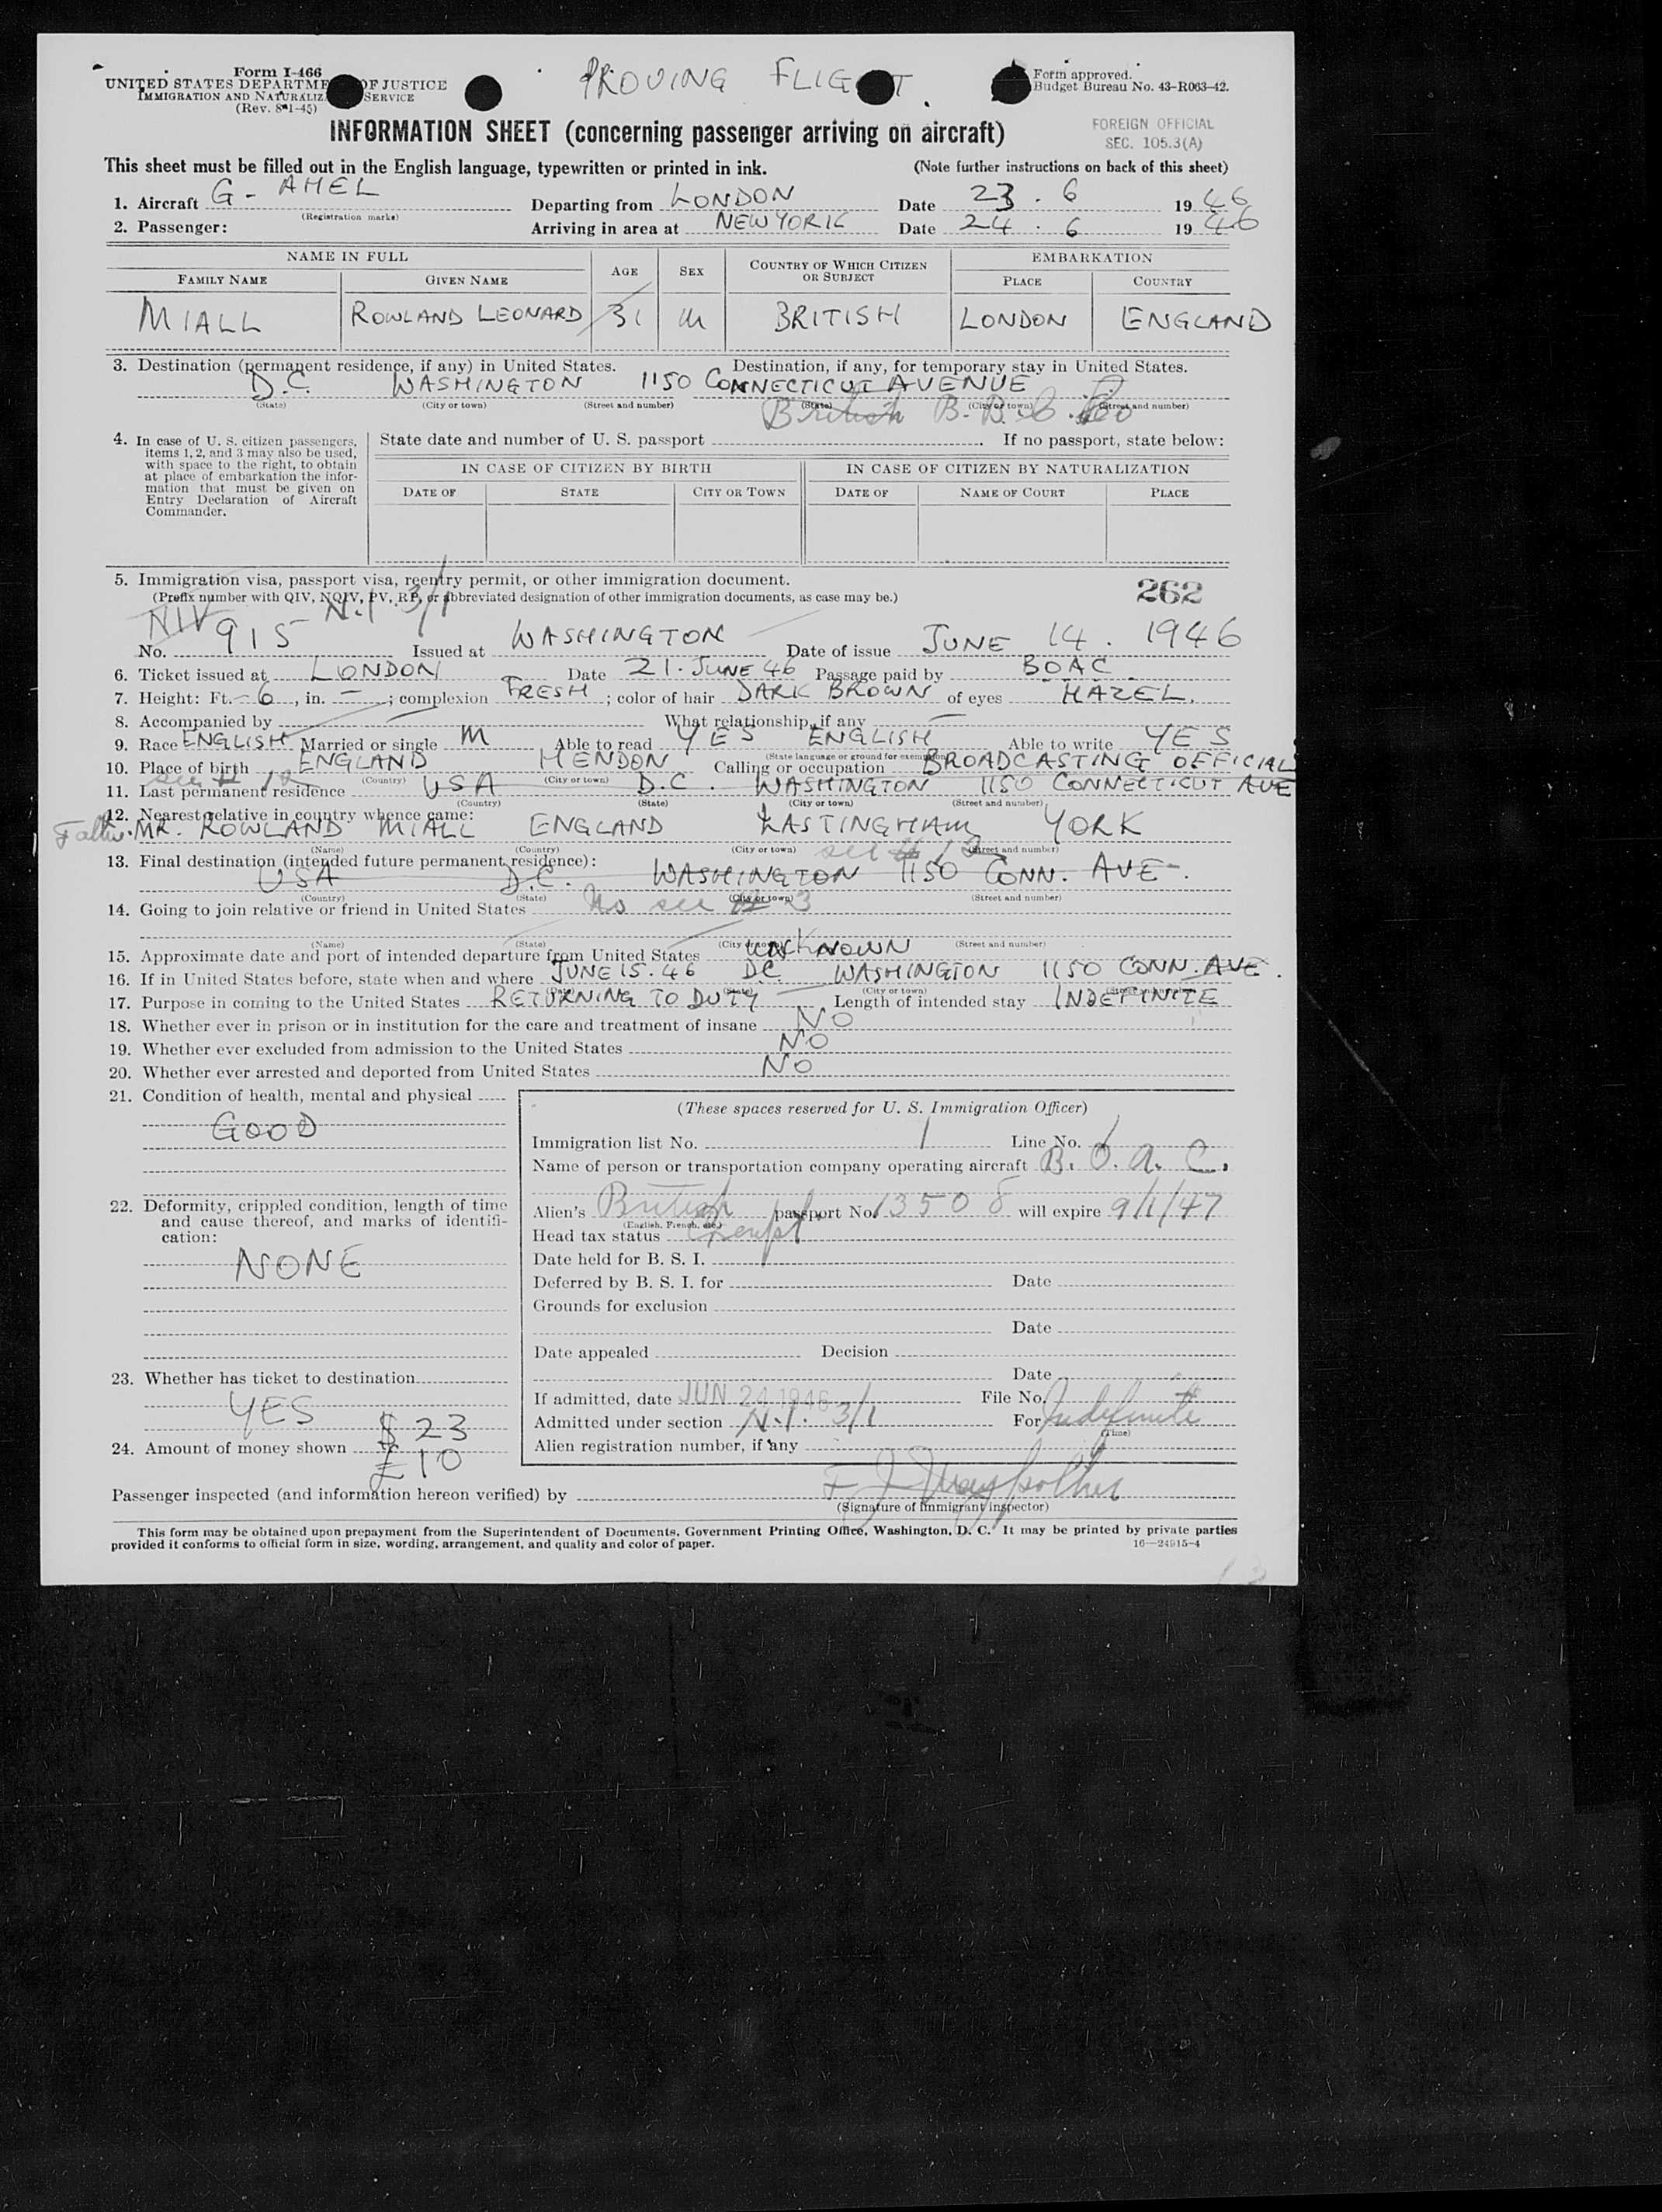 Form I-466
UNITED STATES DEPARTME OF JUSTICE
IMMIGRATION AND NATURALIZ SERVICE
(Rev. 8-1-45)
PROVING FLIG T.
Form approved.
Budget Bureau No. 43-R063-42.
INFORMATION SHEET (concerning passenger arriving on aircraft)
FOREIGN OFFICIAL
SEC. 105.3(A)
This sheet must be filled out in the English language, typewritten or printed in ink. (Note further instructions on back of this sheet)
1. Aircraft G - AHEL Departing from LONDON Date 23 . 6 1946
(Registration marks)
2. Passenger: Arriving in area at NEW YORK Date 24 . 6 1946
NAME IN FULL AGE SEX COUNTRY OF WHICH CITIZEN OR SUBJECT EMBARKATION
FAMILY NAME GIVEN NAME PLACE COUNTRY
MIALL ROWLAND LEONARD 31 M BRITISH LONDON ENGLAND
3. Destination (permanent residence, if any) in United States. Destination, if any, for temporary stay in United States.
D.C. WASHINGTON 1150 CONNECTICUT AVENUE
(State) (City or town) (Street and number) (State) (City or town) (Street and number)
British B.B.C.
4. In case of U. S. citizen passengers, items 1, 2, and 3 may also be used, with space to the right, to obtain at place of embarkation the information that must be given on Entry Declaration of Aircraft Commander.
State date and number of U. S. passport . If no passport, state below:
IN CASE OF CITIZEN BY BIRTH IN CASE OF CITIZEN BY NATURALIZATION
DATE OF STATE CITY OR TOWN DATE OF NAME OF COURT PLACE
5. Immigration visa, passport visa, reentry permit, or other immigration document.
(Prefix number with QIV, NQIV, PV, RP, or abbreviated designation of other immigration documents, as case may be.)
262
NIV N.I. 3/1
No. 915 Issued at WASHINGTON Date of issue JUNE 14. 1946
6. Ticket issued at LONDON Date 21. JUNE 46 Passage paid by BOAC
7. Height: Ft. 6, in. —; complexion FRESH; color of hair DARK BROWN of eyes HAZEL.
8. Accompanied by — What relationship, if any —
9. Race ENGLISH Married or single M Able to read YES ENGLISH Able to write YES
(State language or ground for exemption)
10. Place of birth ENGLAND HENDON Calling or occupation BROADCASTING OFFICIAL
(Country) (City or town)
see # 12
11. Last permanent residence USA D.C. WASHINGTON 1150 CONNECTICUT AVE
(Country) (State) (City or town) (Street and number)
12. Nearest relative in country whence came:
Father. MR. ROWLAND MIALL ENGLAND LASTINGHAM YORK
(Name) (Country) (City or town) (Street and number)
see # 12
13. Final destination (intended future permanent residence):
USA D.C. WASHINGTON 1150 CONN. AVE.
(Country) (State) (City or town) (Street and number)
14. Going to join relative or friend in United States No see 3
(Name) (State) (City or town) (Street and number)
15. Approximate date and port of intended departure from United States UNKNOWN
16. If in United States before, state when and where JUNE 15. 46 DC. WASHINGTON 1150 CONN. AVE.
(Date) (State) (City or town) (Street and number)
17. Purpose in coming to the United States RETURNING TO DUTY Length of intended stay INDEFINITE
18. Whether ever in prison or in institution for the care and treatment of insane NO
19. Whether ever excluded from admission to the United States NO
20. Whether ever arrested and deported from United States NO
21. Condition of health, mental and physical
GOOD
22. Deformity, crippled condition, length of time and cause thereof, and marks of identification:
NONE
23. Whether has ticket to destination
YES
24. Amount of money shown $23
£10
(These spaces reserved for U. S. Immigration Officer)
Immigration list No. 1 Line No. 1
Name of person or transportation company operating aircraft B. O. A. C.
Alien's British passport No. 13508 will expire 9/1/47
(English, French, etc.)
Head tax status Exempt
Date held for B. S. I.
Deferred by B. S. I. for Date
Grounds for exclusion
Date
Date appealed Decision
Date
If admitted, date JUN 24 1946 File No.
Admitted under section N.I. 3/1 For Indefinite
(Time)
Alien registration number, if any
Passenger inspected (and information hereon verified) by
(Signature of immigrant inspector)
This form may be obtained upon prepayment from the Superintendent of Documents, Government Printing Office, Washington, D. C. It may be printed by private parties
provided it conforms to official form in size, wording, arrangement, and quality and color of paper. 16—24915-4